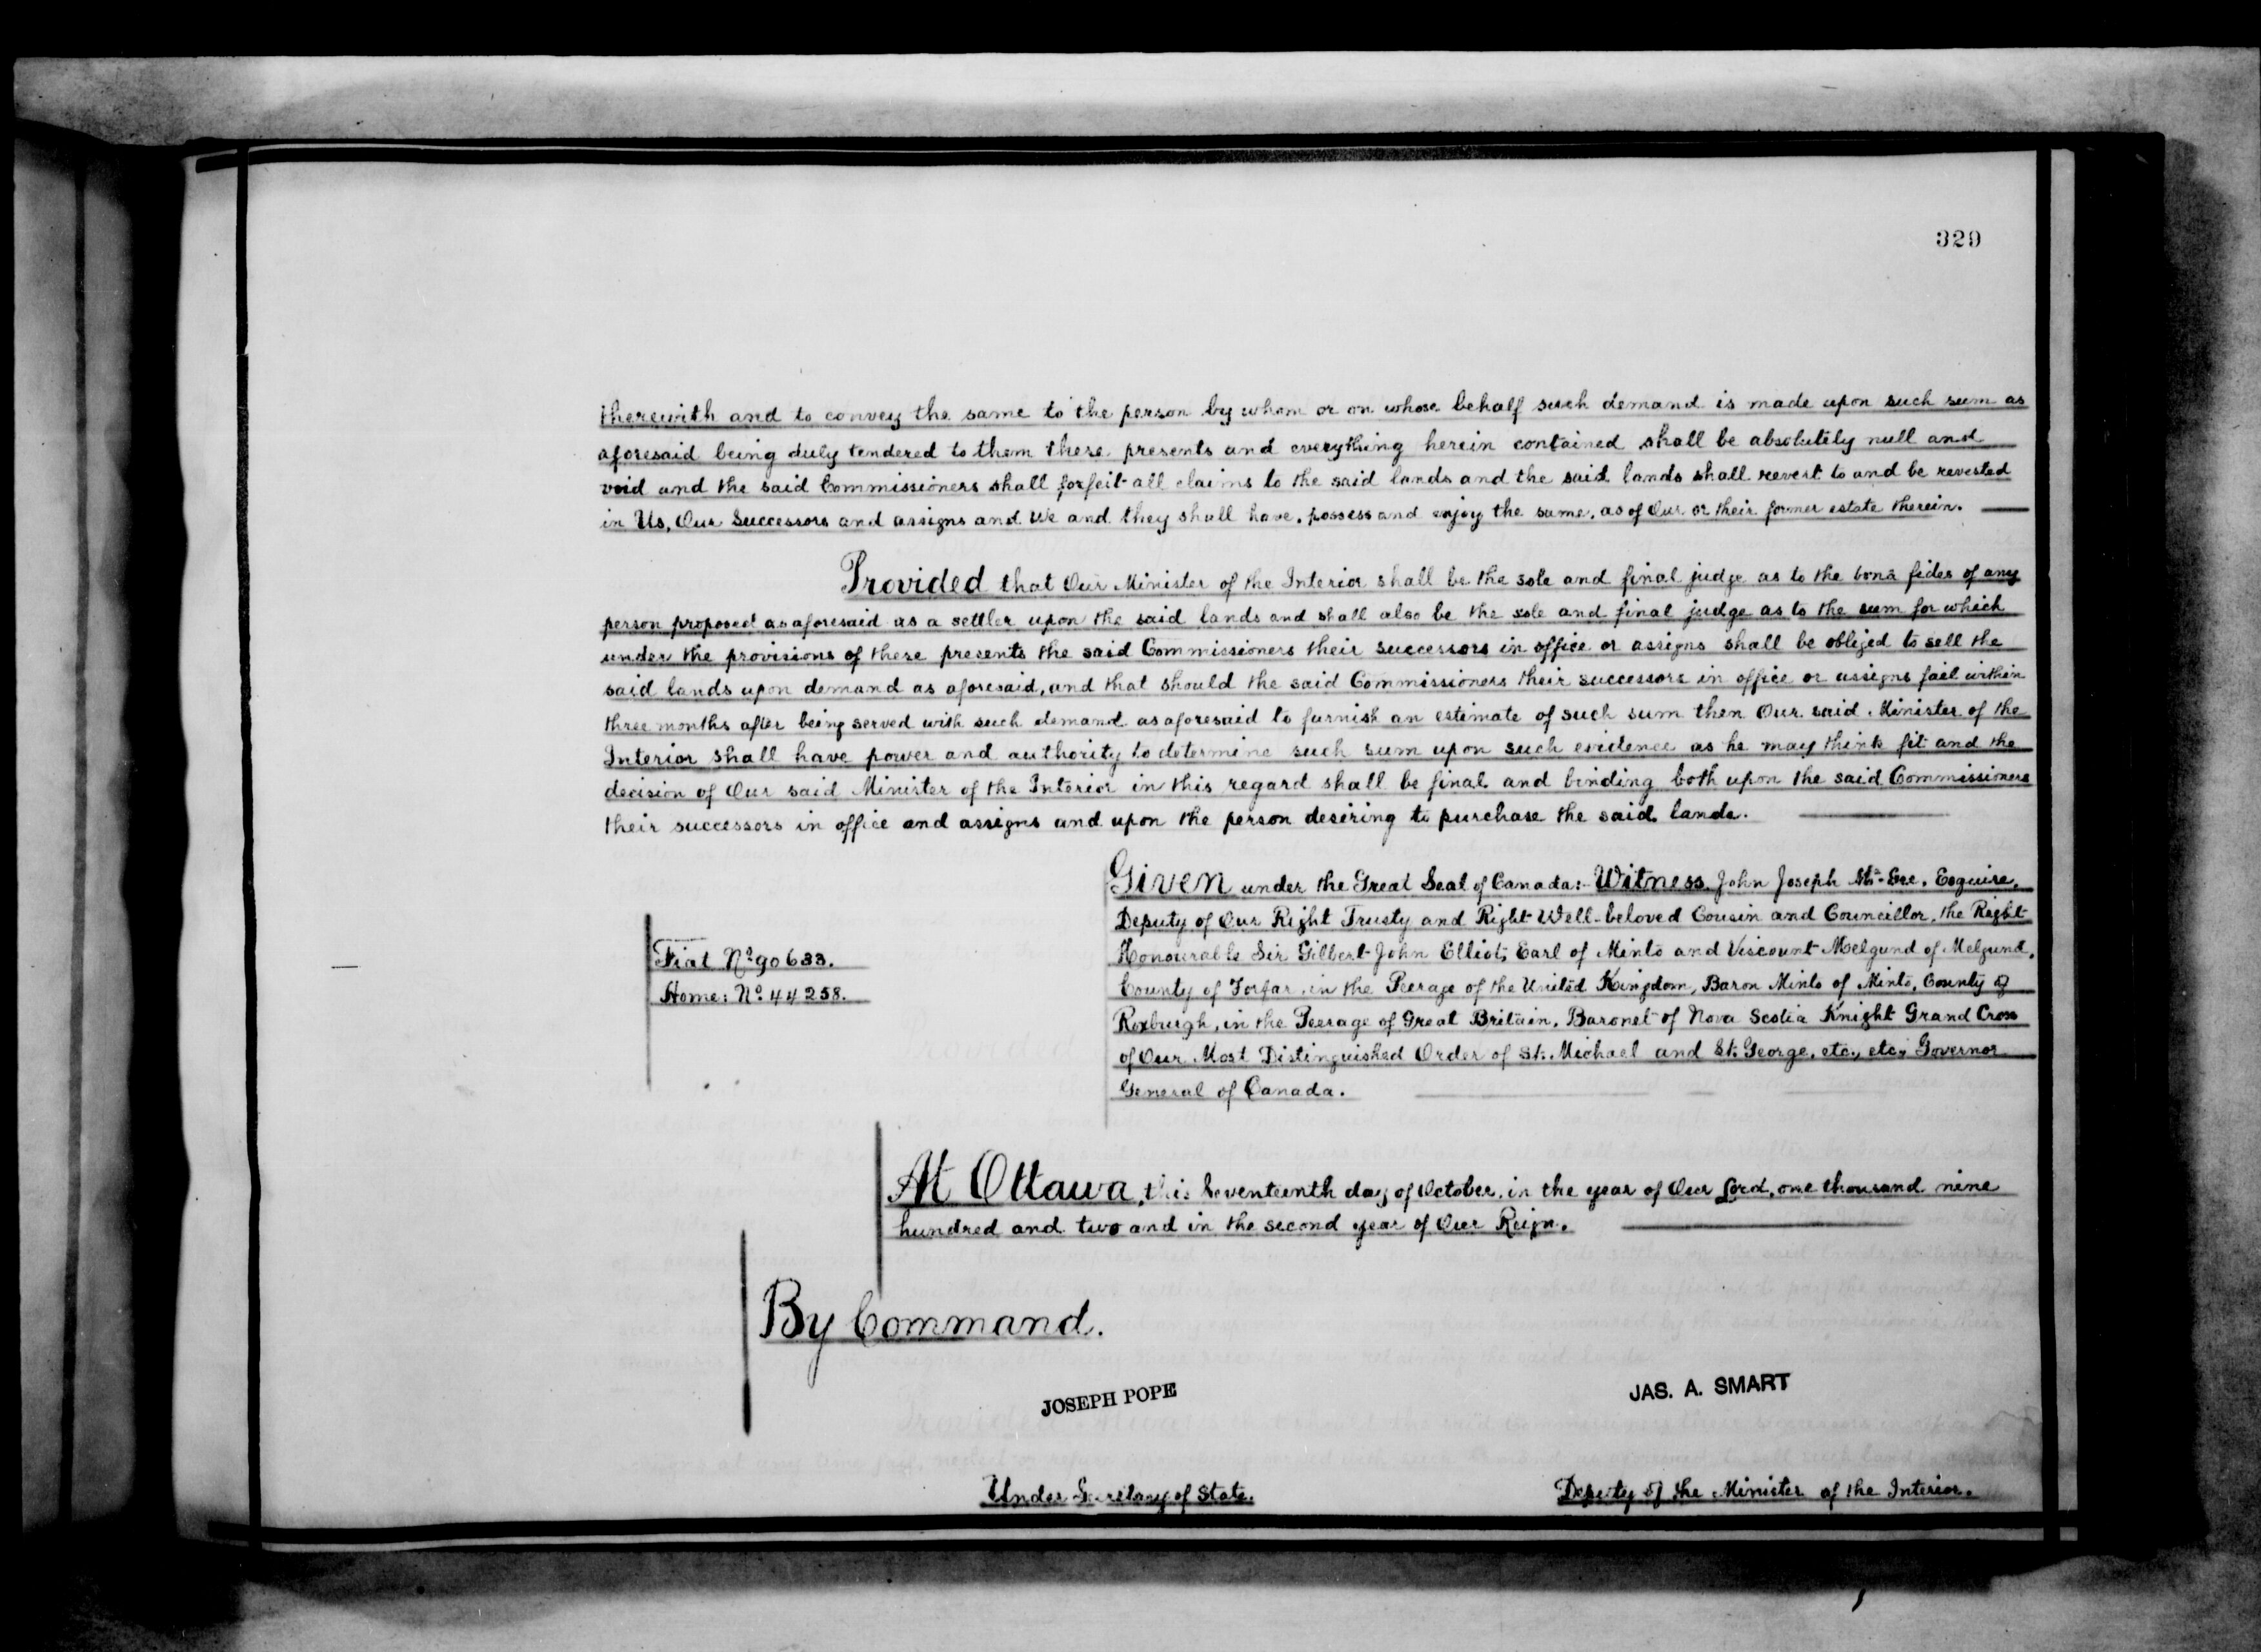 329
therewith and to convey the same to the person by whom or on whose behalf such demand is made upon such sum as
aforesaid being duly tendered to them these presents and everything herein contained shall be absolutely null and
void and the said Commissioners shall forfeit all claims to the said lands and the said lands shall revert to and be revested
in Us, Our Successors and assigns and We and they shall have, possess and enjoy the same, as of Our or their former estate therein.
Provided that Our Minister of the Interior shall be the sole and final judge as to the bonâ fides of any
person proposed as aforesaid as a settler upon the said lands and shall also be the sole and final judge as to the sum for which
under the provisions of these presents the said Commissioners their successors in office or assigns shall be obliged to sell the
said lands upon demand as aforesaid, and that should the said Commissioners their successors in office or assigns fail within
three months after being served with such demand as aforesaid to furnish an estimate of such sum then Our said Minister of the
Interior shall have power and authority to determine such sum upon such evidence as he may think fit and the
decision of Our said Minister of the Interior in this regard shall be final and binding both upon the said Commissioners
their successors in office and assigns and upon the person desiring to purchase the said lands.
Given under the Great Seal of Canada:- Witness, John Joseph McGee, Esquire,
Deputy of Our Right Trusty and Right Well-beloved Cousin and Councillor, the Right
Honourable Sir Gilbert John Elliot, Earl of Minto and Viscount Melgund of Melgund,
County of Forfar, in the Peerage of the United Kingdom, Baron Minto of Minto, County of
Roxburgh, in the Peerage of Great Britain, Baronet of Nova Scotia Knight Grand Cross
of Our Most Distinguished Order of St. Michael and St. George, etc., etc., Governor
General of Canada.
Fiat No 90633.
Home: No 44258.
At Ottawa, this Seventeenth day of October, in the year of Our Lord, one thousand nine
hundred and two and in the second year of Our Reign.
By Command.
JOSEPH POPE
JAS. A. SMART
Under Secretary of State.
Deputy of the Minister of the Interior.